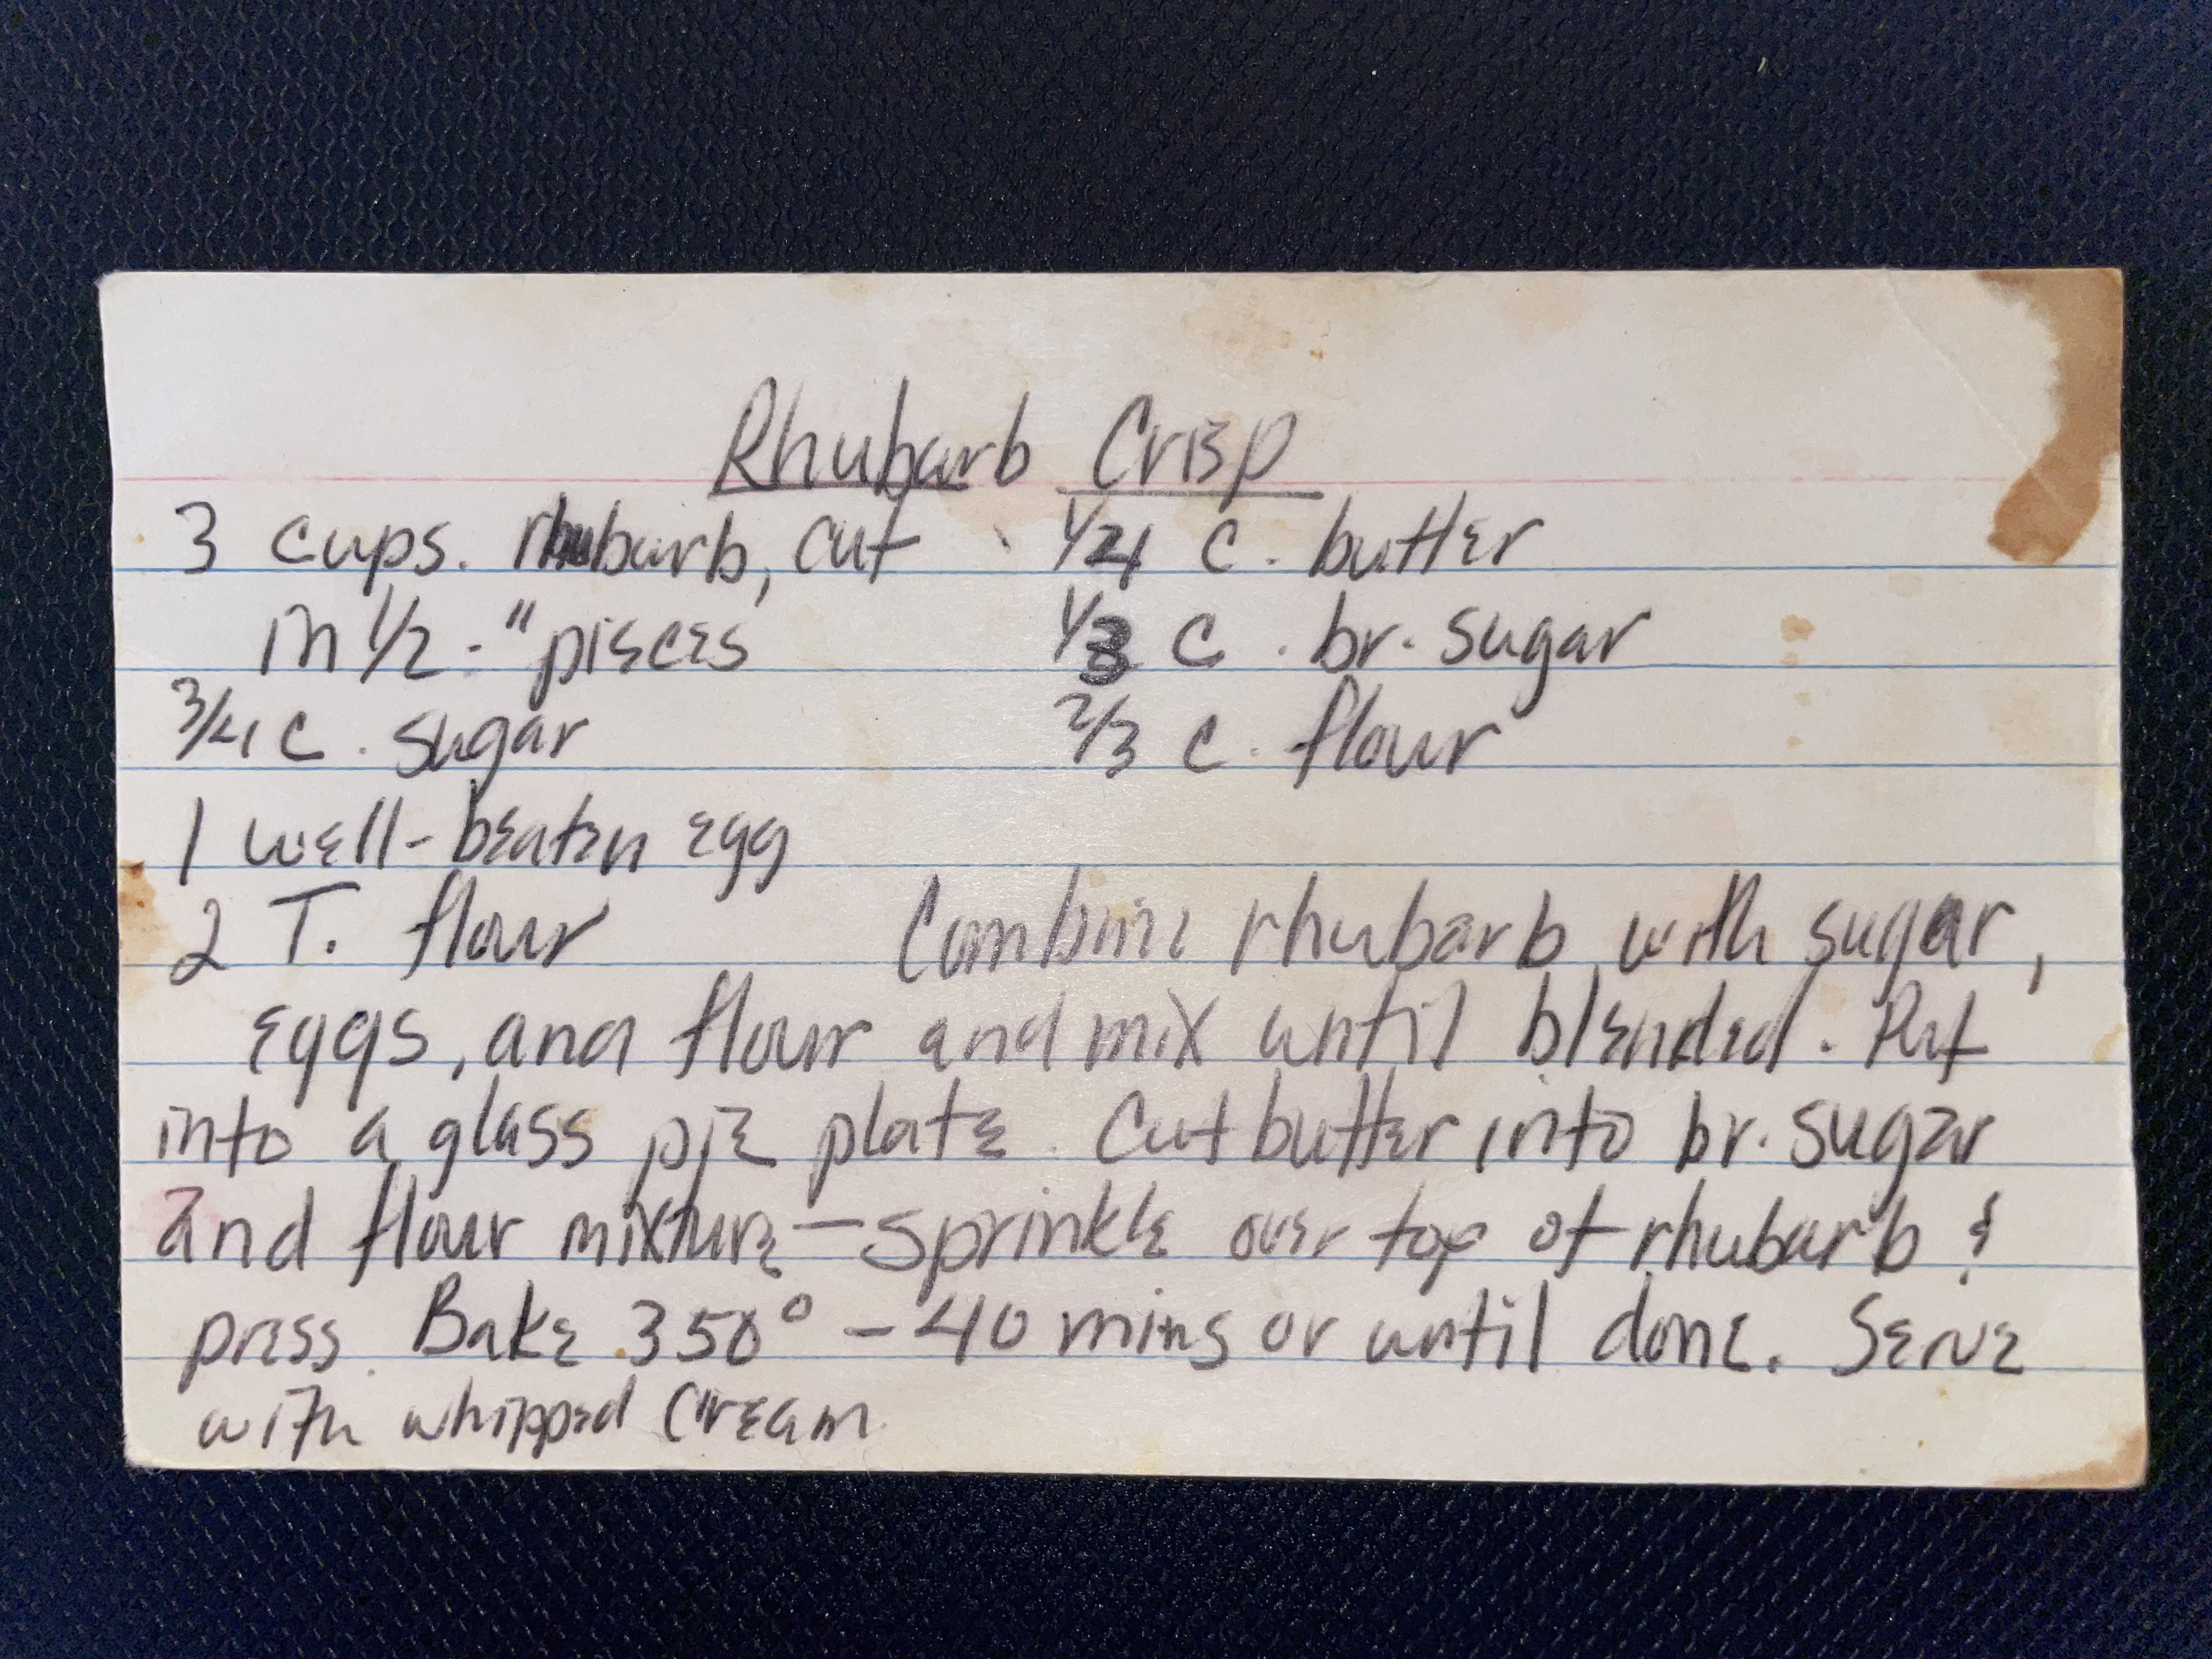 Rhubarb Crisp
3 cups. rhubarb, cut 1/4 c. butter
in 1/2-" pieces 1/3 c. br. sugar
3/4 c. sugar 2/3 c. flour
1 well-beaten egg
2 T. flour Combine rhubarb with sugar,
eggs, and flour and mix until blended. Put
into a glass pie plate. Cut butter into br. sugar
and flour mixture - sprinkle over top of rhubarb &
press. Bake 350° - 40 mins or until done. Serve
with whipped cream